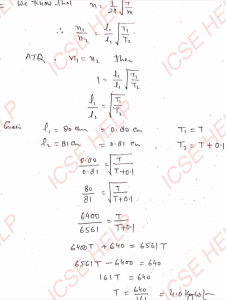 = We know that n = 1/2l √T/m
∴ n₁/n₂ = l₂/l₁ √T₁/T₂
ATQ, n₁ = n₂ then
1 = l₂/l₁ √T₁/T₂
l₁/l₂ = √T₁/T₂
l₁ = 80 cm = 0.80 cm T₁ = T
l₂ = 81 cm = 0.81 cm T₂ = T + 0.1
0.80/0.81 = √T/T+0.1
80/81 = √T/T+0.1
6400/6561 = T/T+0.1
6400T + 640 = 6561T
6561T - 6400 = 640
161T = 640
T = 640/161 =
ICSE HELP
ICSE HELP
ICSE HELP